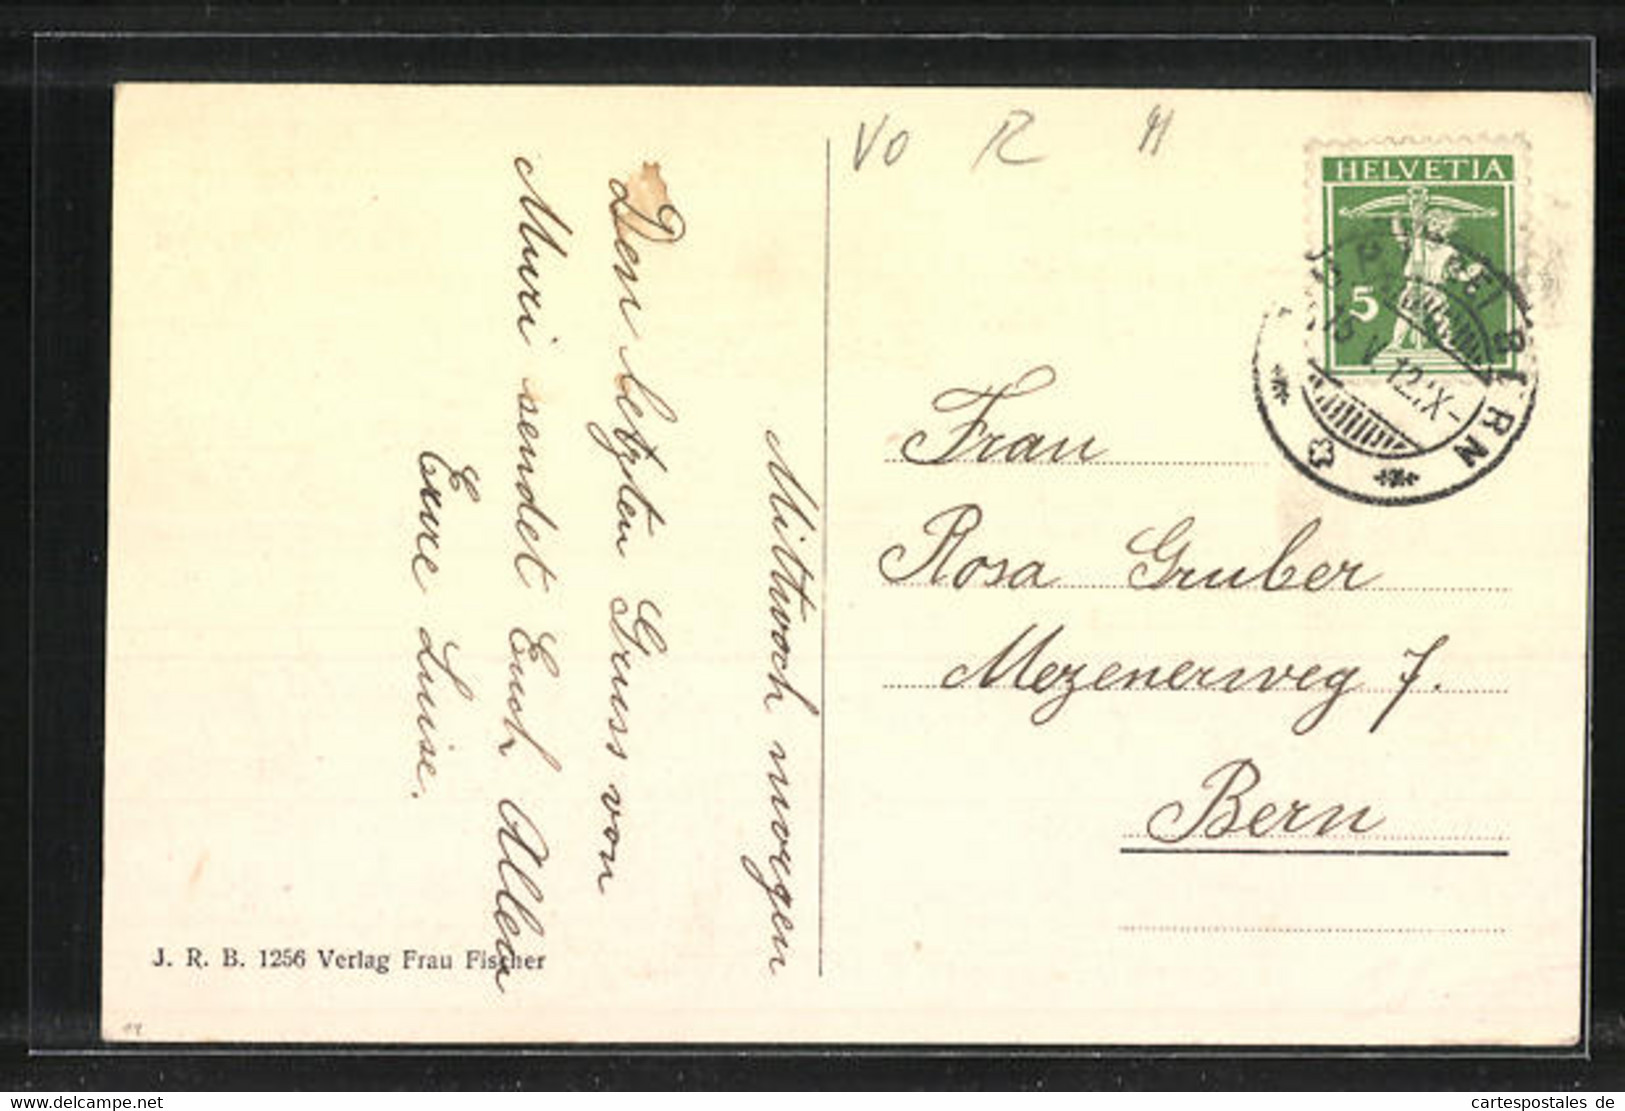 Mittwoch morgen
Den letzten Gruss von
Muri sendet Euch Allen
Eure Luise.
J. R. B. 1256 Verlag Frau Fischer
VO R
HELVETIA
5
BERN
Frau
Rosa Gruber
Mezenerweg 7.
Bern
www.cartespostales.com
cartespostales de